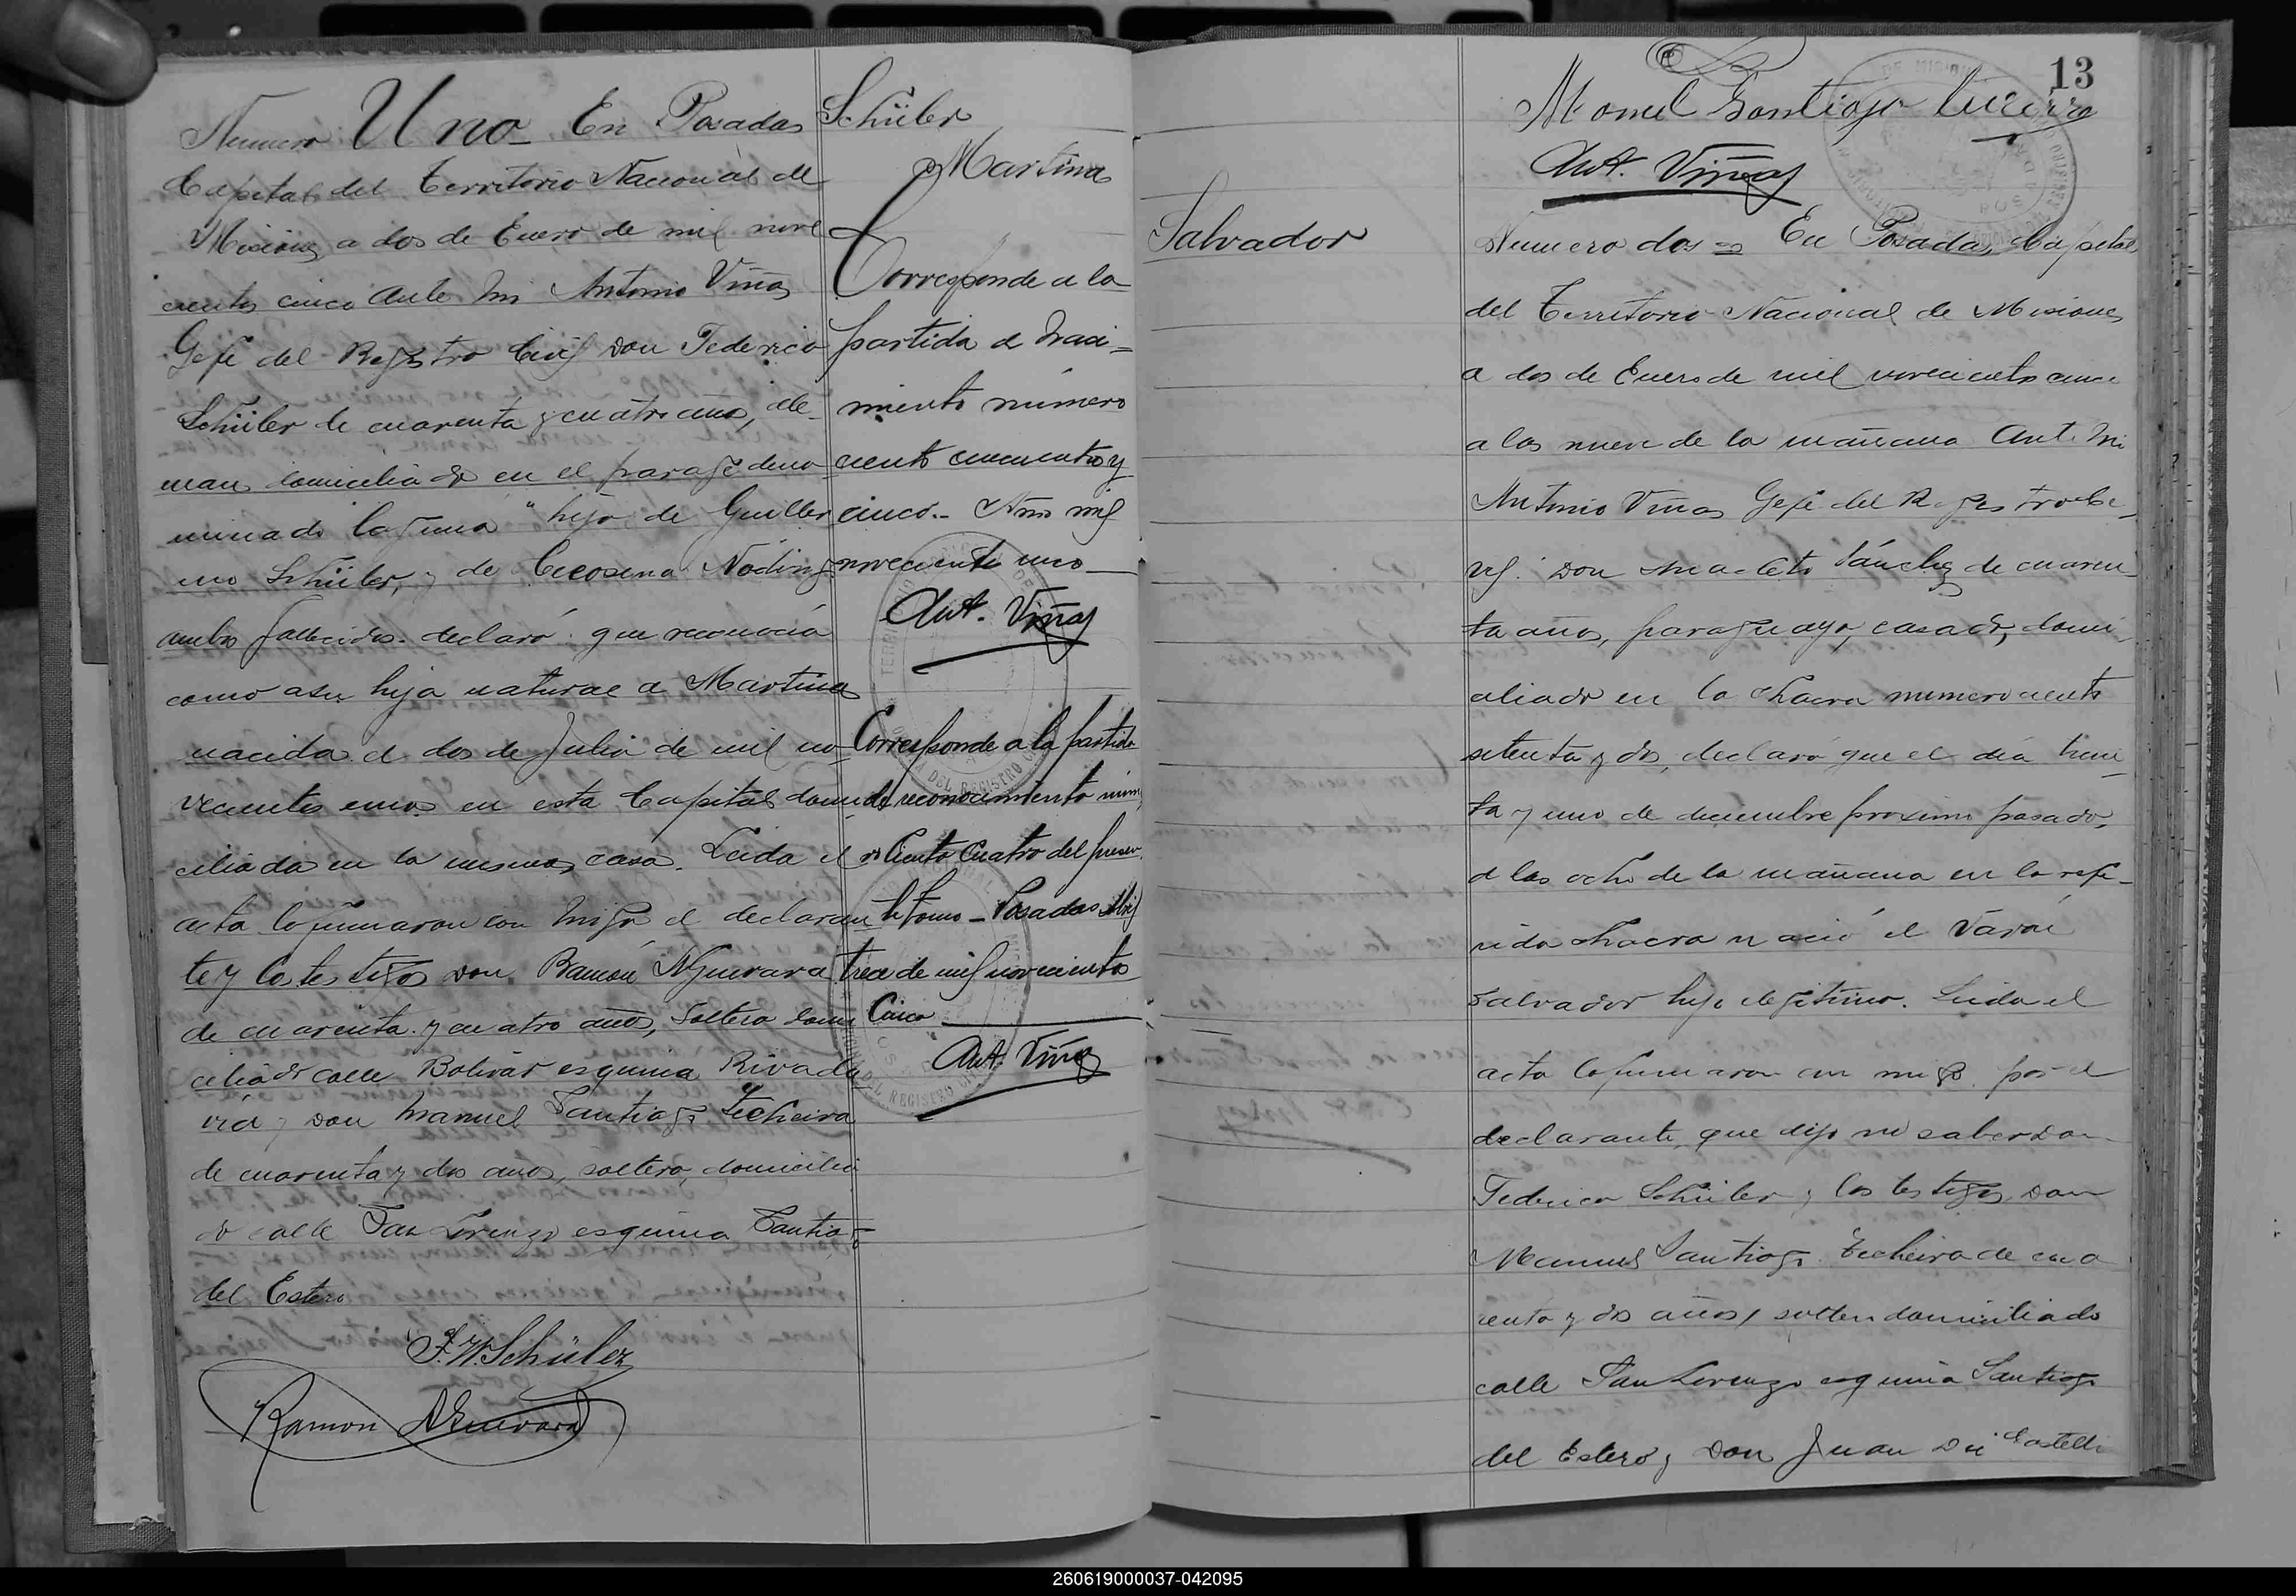 Numero Uno - En Posadas
Capital del Territorio Nacional de
Misiones a dos de Enero de mil nove
cientos cinco Ante mi Antonio Viñas
Gefe del Registro Civil Don Federico
Schüler de cuarenta y cuatro años, ale-
man domiciliado en el parage deno
minado laguna" hijo de Guiller
mo Schüler, y de Nöding
ambos fallecidos. declaró: que reconocia
como a su hija natural a Martina
nacida el dos de Julio de mil no-
vecientos uno en esta Capital domi
ciliada en la misma casa. Leida el
acta la firmaron con migo el declaran
te y los testigos Don Ramón A Guevara
de cuarenta y cuatro años, soltero domi
ciliado calle Bolivar esquina Rivada
via y Don Manuel Santiago Techeira
de cuarenta y dos años, soltero, domicilia
do calle San Lorenzo esquina Santiago
del Estero
F. W. Schüler
Ramon A Guevara
Schüler
Martina
Corresponde a la
partida de naci=
miento número
ciento cincuenta y
cinco.- Año mil
novecientos uno -
Ant. Viñas
Corresponde a la partida
de reconocimiento núme
ro Ciento Cuatro del presen
te tomo - Posadas Abril
trece de mil novecientos
Cinco
Ant. Viñas
13
Manuel Santiago
Ant. Viñas
Salvador
Numero dos = En Posadas, Capital
del Territorio Nacional de Misiones
a dos de Enero de mil novecientos cinco
a las nueve de la mañana Ante mi
Antonio Viñas Gefe del Registro Ci-
vil. Don Anacleto Sánchez de cuaren-
ta años, paraguayo, casado, domi
ciliado en la chacra numero ciento
setenta y dos, declaró que el dia trein-
ta y uno de diciembre proximo pasado,
a las ocho de la mañana en la refe-
rida chacra nació el varón
Salvador hijo legitimo. Leida el
acta la firmaron con migo por el
declarante, que dijo no saber Don
Federico Schüler y los testigos Don
Manuel Santiago Techeira de cua
renta y dos años, soltero domiciliado
calle San Lorenzo esquina Santiago
del Estero y Don Juan De Castelli
260619000037-042095